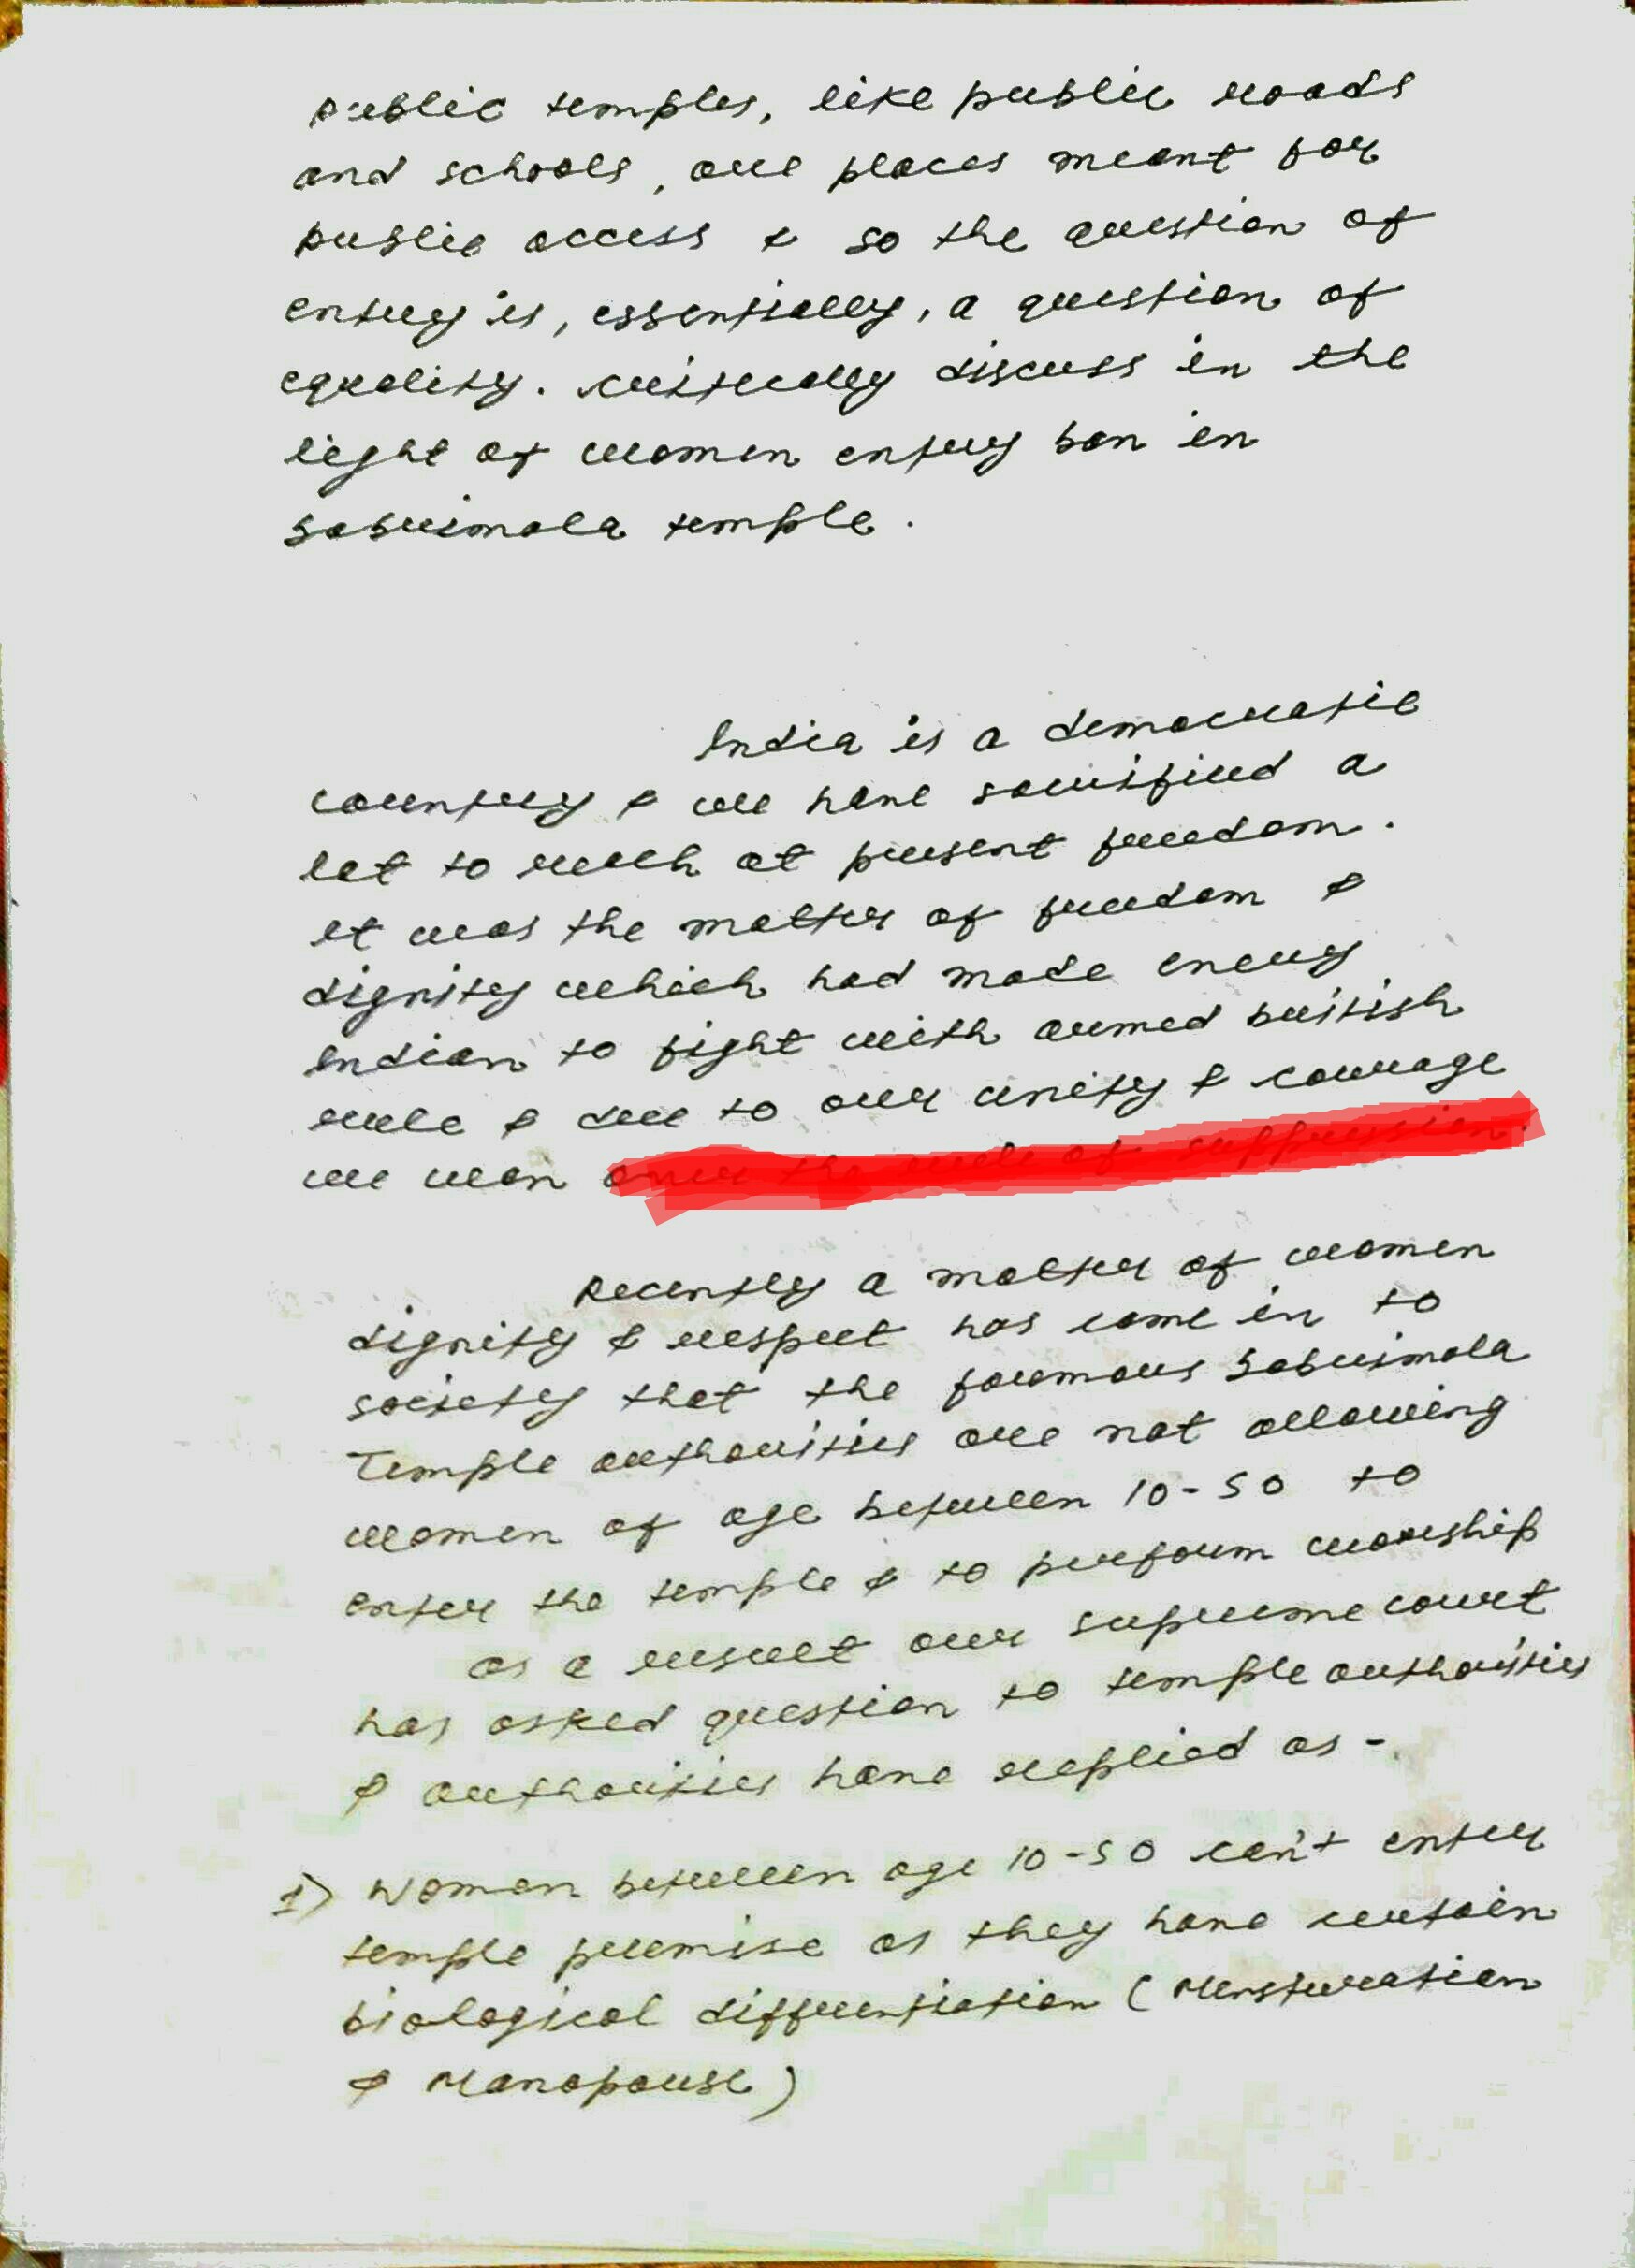 Public temples, like public roads
and schools, are places meant for
public access & so the question of
entry is, essentially, a question of
equality. critically discuss in the
light of women entry ban in
Sabrimala temple.
India is a democratic
country & we have sacrificed a
lot to reach at present freedom.
It was the matter of freedom &
dignity which had made every
Indian to fight with armed british
rule & due to our unity & courage
we won over the rule of suppression.
Recently a matter of women
dignity & respect has come in to
society that the
Sabrimala
Temple authorities are not allowing
women of age between 10-50 to
enter the temple & to perform worship
as a result our supreme court
has asked question to temple authorities
& authorities have replied as -
1) Women between age 10-50 can't enter
temple premise as they have certain
biological differentiation (Mensturation
& Manopause)